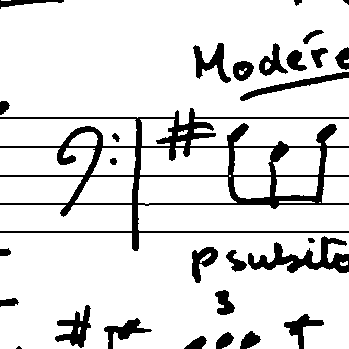 Modéré
p subito
3